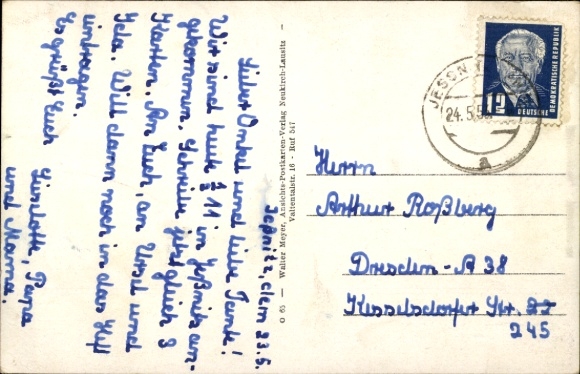 Jeßnitz, den 23.5.
Lieber Onkel und liebe Tante!
Wir sind heut ½ 11 in Jeßnitz an-
gekommen. Schreibe jetzt gleich 3
Karten. An Euch, an Ursel und
Ilda. Will dann noch in das Heft
eintragen.
Es grüßt Euch
Liselotte, Papa
und Mama.
O 65 — Walter Meyer, Ansichts-Postkarten-Verlag Neukirch-Lausitz
Valtentalstr. 16 - Ruf 547
12
DEUTSCHE
DEMOKRATISCHE REPUBLIK
JESSN
24.5.5
a
Herrn
Arthur Roßberg
Dresden-A 38
Kesselsdorfer Str.
245